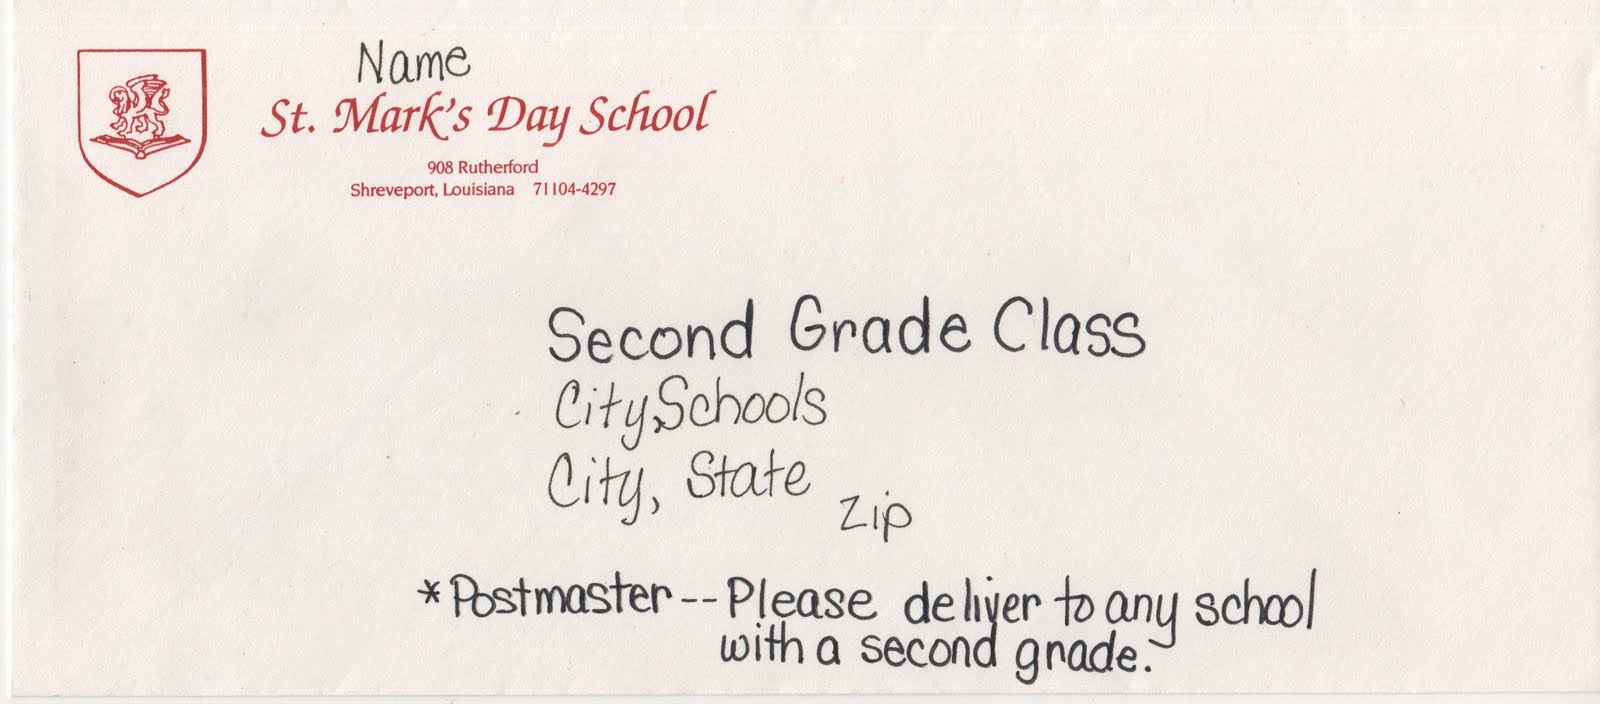 Name
St. Mark's Day School
908 Rutherford
Shreveport, Louisiana 71104-4297
Second Grade Class
City Schools
City, State
Zip
*Postmaster -- Please deliver to any school
with a second grade.